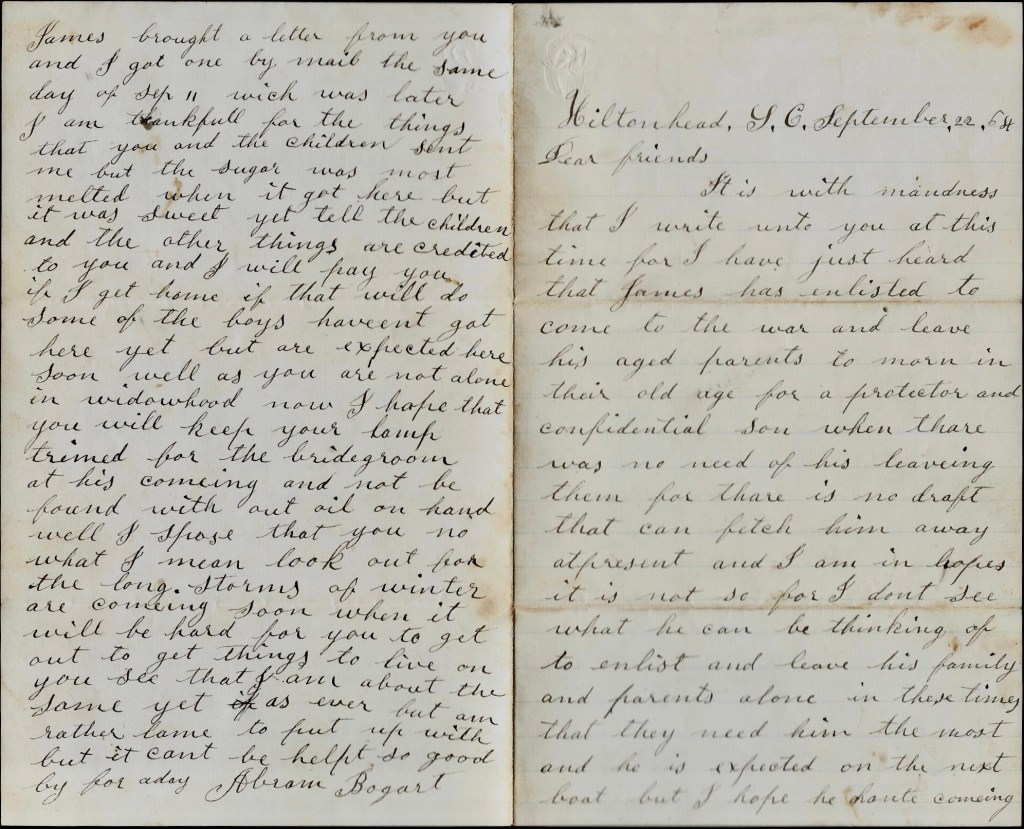 Hiltonhead, S. C. September, 22, 64
Dear friends
It is with mandness
that I write unto you at this
time for I have just heard
that James has enlisted to
come to the war and leave
his aged parents to morn in
their old age for a protector and
confidential son when thare
was no need of his leaveing
them for thare is no draft
that can fetch him away
atpresent and I am in hopes
it is not so for I dont see
what he can be thinking of
to enlist and leave his family
and parents alone in these times
that they need him the most
and he is expected on the next
boat but I hope he hante comeing
James brought a letter from you
and I got one by mail the same
day of Sep 11 wich was later
I am thankfull for the things
that you and the children sent
me but the sugar was most
melted when it got here but
it was sweet yet tell the children
and the other things are credited
to you and I will pay you
if I get home if that will do
Some of the boys haveent got
here yet but are expected here
soon well as you are not alone
in widowhood now I hope that
you will keep your lamp
trimed for the bridegroom
at his comeing and not be
found with out oil on hand
well I spose that you no
what I mean look out for
the long storms of winter
are comeing soon when it
will be hard for you to get
out to get things to live on
you see that I am about the
same yet as ever but am
rather lame to put up with
but it cant be helpt so good
by for aday Abram Bogart